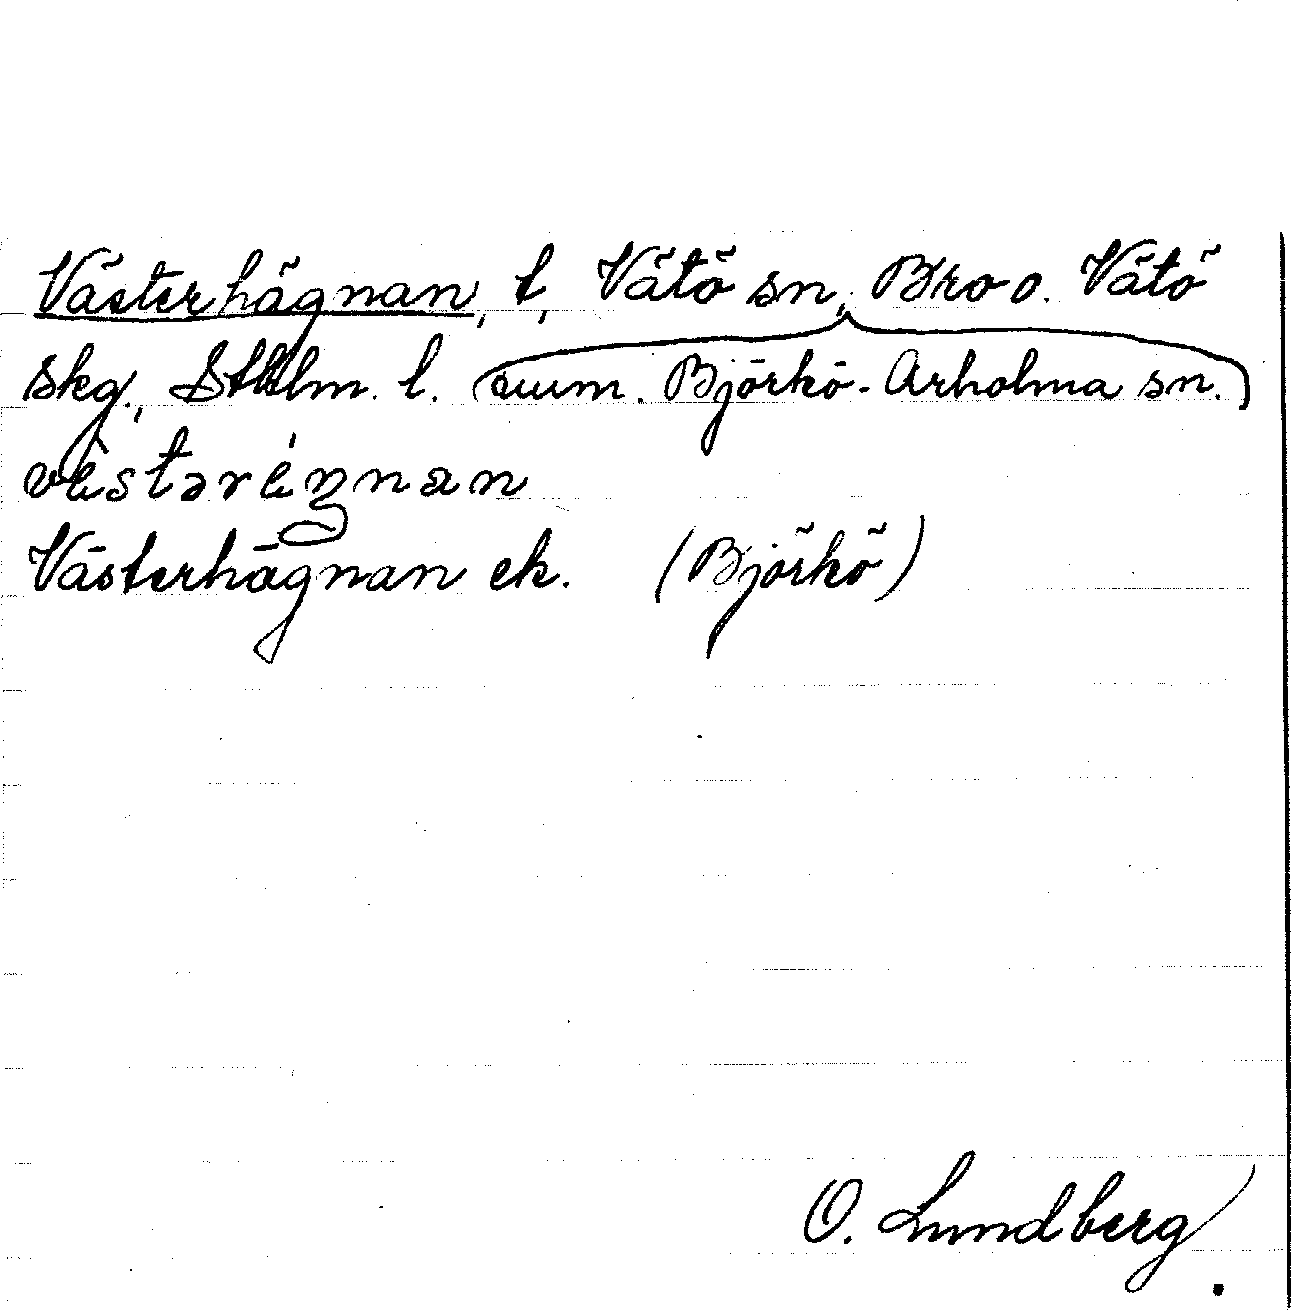 Västerhägnan, t, Vätö sn, Bro o. Vätö
skg., Sthlm. l. (num. Björkö-Arholma sn.)
vèstəréŋnan
Västerhägnan ek. (Björkö)
O. Lundberg